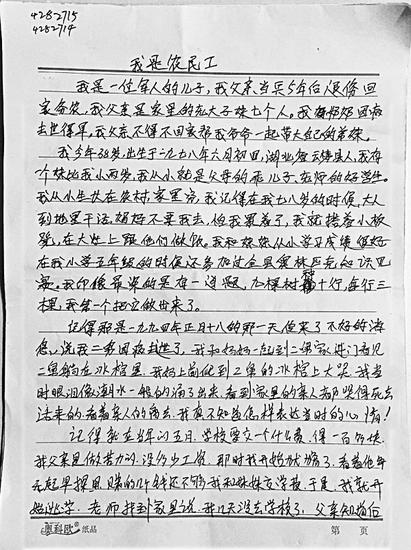 4282715
4282714
我是农民工
我是一位军人的儿子,我父亲当兵5年后退伍回
家务农,我父亲是家里的老大子妹七个人。我奶奶因病
去世得早,我父亲不得不回家帮我爷爷一起带大自己的弟妹。
我今年38岁,出生于一九七八年六月初四,湖北 县人,我有
个妹比我小两岁,我从小就是父母的乖儿子,老师的好学生。
我从小生长在农村,家里穷,我记得在我七八岁的时候,大人
到地里干活,妈妈不要我去,怕我累着了,我就搭着小板
凳,在大灶上跟他们做饭。我和妹妹从小学习成绩很好
在我小学五年级的时候还参加过全县奥林匹克知识竞
赛。我印象最深的是有一道题,九棵树种十行,每行三
棵,我第一个把它做出来了。
记得那是一九九四年正月十八的那一天传来了不好的消
息,说我二舅因病去世了,我和妈妈一起到二舅家,进门看见
二舅躺在冰棺里,我妈上前伏到二舅的冰棺上大哭,我当
时眼泪像潮水一般的涌了出来,看到家里的亲人都哭得死去
活来的,看着亲人的离去,我真不知道怎样表达当时的心情!
记得就在当年的五月,学校要交一个什么费,得一百多块
我父亲是做苦力的,没得多少工资,那时我开始犹豫了,看着他每
天起早摸黑,赚的几个钱还不够我和妹妹交学校,于是,我就开
始逃学。老师找到家里说,我几天没去学校了,父亲知道后
奥科欧®纸品
第 页